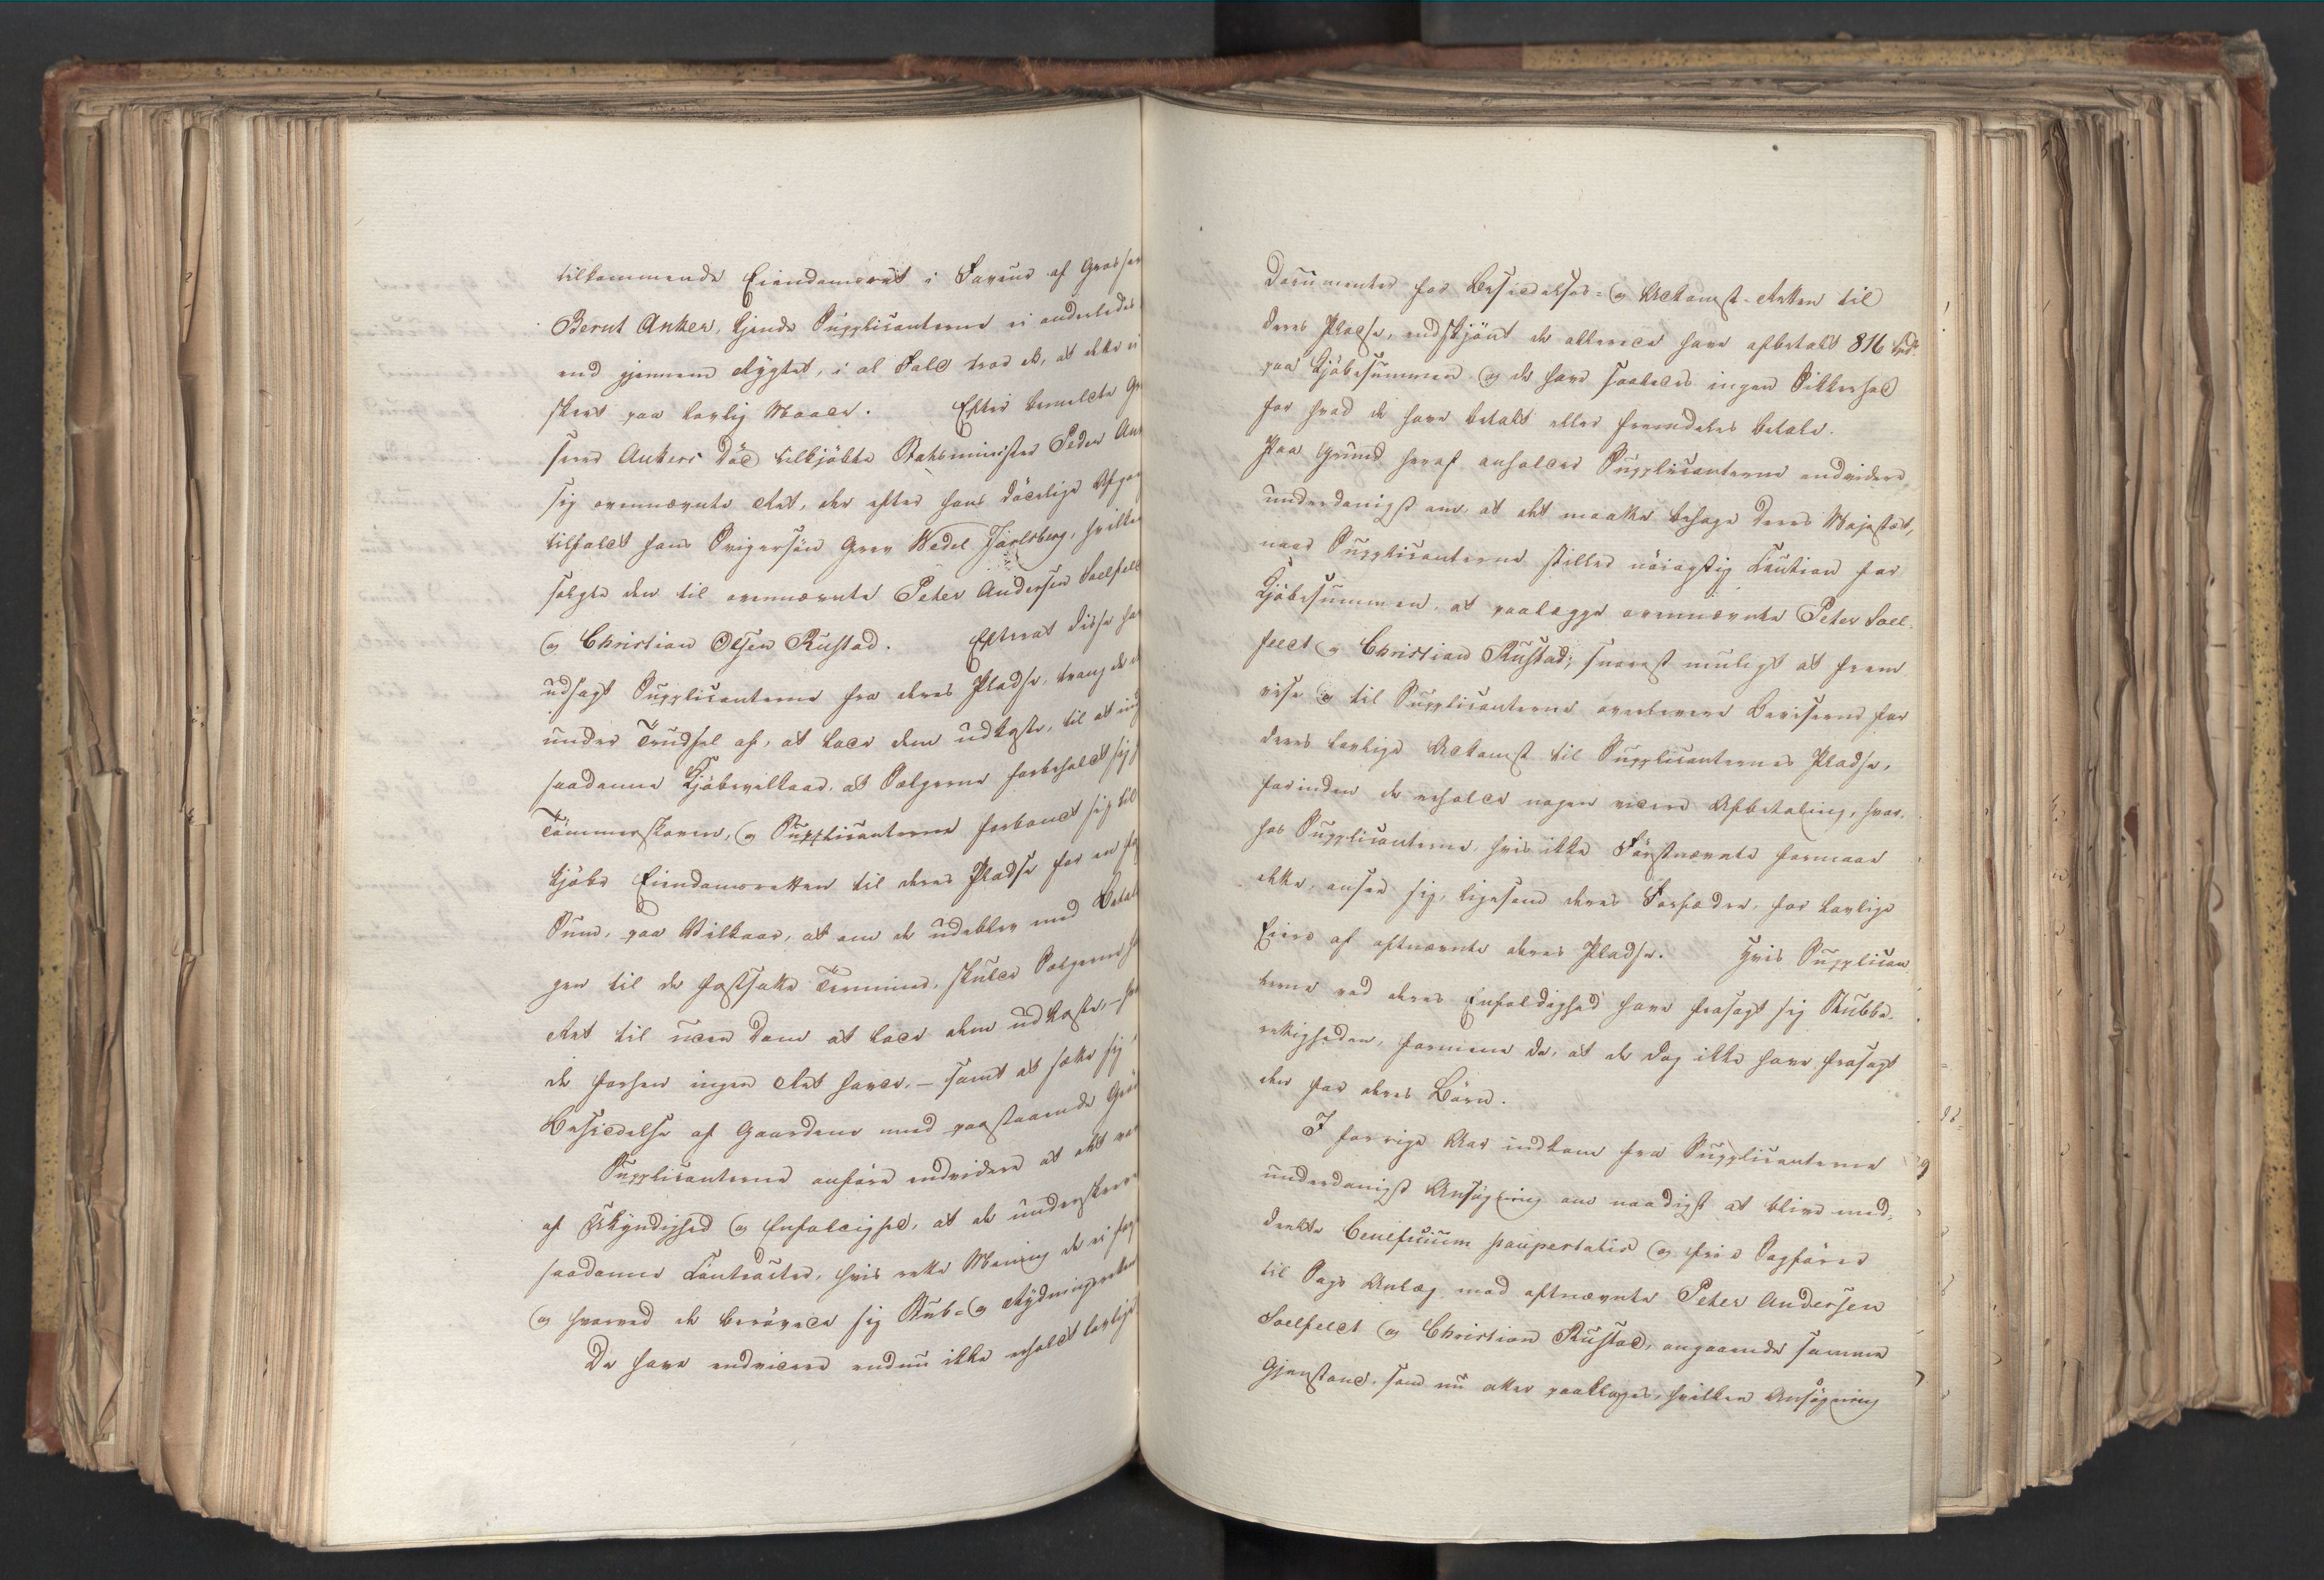 tilkommende Eiendomsret i Faveur af Grosser
Bernt Anker, kjende Supplicanterne ei anderledes
end gjennem Rygtet, i al Fald troe de, at dette ei
skeet paa lovlig Maade. Efter bemeldte Gr
serer Ankers Död tilkjöbte Statsminister Peder An
sig ovennævnte Ret, der efter hans dödelige Afgan
tilfaldt hans Svigersön Grev Wedel Jarlsberg, hvilken
solgte den til ovennævnte Peter Andersen Soelfeld
og Christian Olsen Rustad. Efterat disse ha
udsagt Supplicanterne fra deres Pladse, tvang de
under Trudsel af, at lade dem udkaste, til at ind
saadanne Kjöbevilkaar, at Sælgerne forbeholdt sig
Tömmerskoven, og Supplicanterne forbandt sig til
kjöbe Eiendomsretten til deres Pladse for en
Sum, paa Vilkaar, at om de udeblev med Betal
gen til de fastsatte Terminer, skulde Sælgerne
Ret til uden Dom at lade dem udkaste,
de forhen ingen Ret havde, – samt at sætte sig
Besiddelse af Gaardene med paastaaende
Supplicanterne anföre endvidere at det
af Ukyndighed og Enfoldighed, at de underskrev
saadanne Contracter, hvis rette Mening de ei
og hvorved de berövede sig Stub- og Rydningsretten
De have endvidere endnu ikke erholdt lovlige
Documenter for Besiddelses- og Adkomst-Retten til
deres Pladse, endskjönt de allerede have afbetalt 816 Spd.
paa Kjöbesummen og de have saaledes ingen Sikkerhed
for hvad de have betalt eller fremdeles betale.
Paa Grund heraf anholder Supplicanterne endvidere
underdanigst om, at det maatte behage Deres Majestæt,
naar Supplicanterne stiller nöiagtig Caution for
Kjöbesummen, at paalægge ovennævnte Peter Soel-
feldt og Christian Rustad, snarest muligt at frem-
vise og til Supplicanterne overlevere Beviserne for
deres lovlige Adkomst til Supplicanternes Pladse,
forinden de erholde nogen videre Afbetaling, hvor-
hos Supplicanterne, hvis ikke Förstnævnte formaae
dette, ansee sig, ligesom deres Forfædre, for lovlige
Eiere af oftnævnte deres Pladse. Hvis Supplican-
terne ved deres Enfoldighed have frasagt sig Stubbe-
rettigheden, formene de, at de dog ikke have frasagt
den for deres Börn.
I forrige Aar indkom fra Supplicanterne
underdanigst Ansögning om naadigst at blive med-
deelte beneficium paupertatis og frie Sagförer
til Sags Anlæg mod oftnævnte Peter Andersen
Soelfeldt og Christian Rustad, angaaende samme
Gjenstand, som nu atter paaklages, hvilken Ansögning